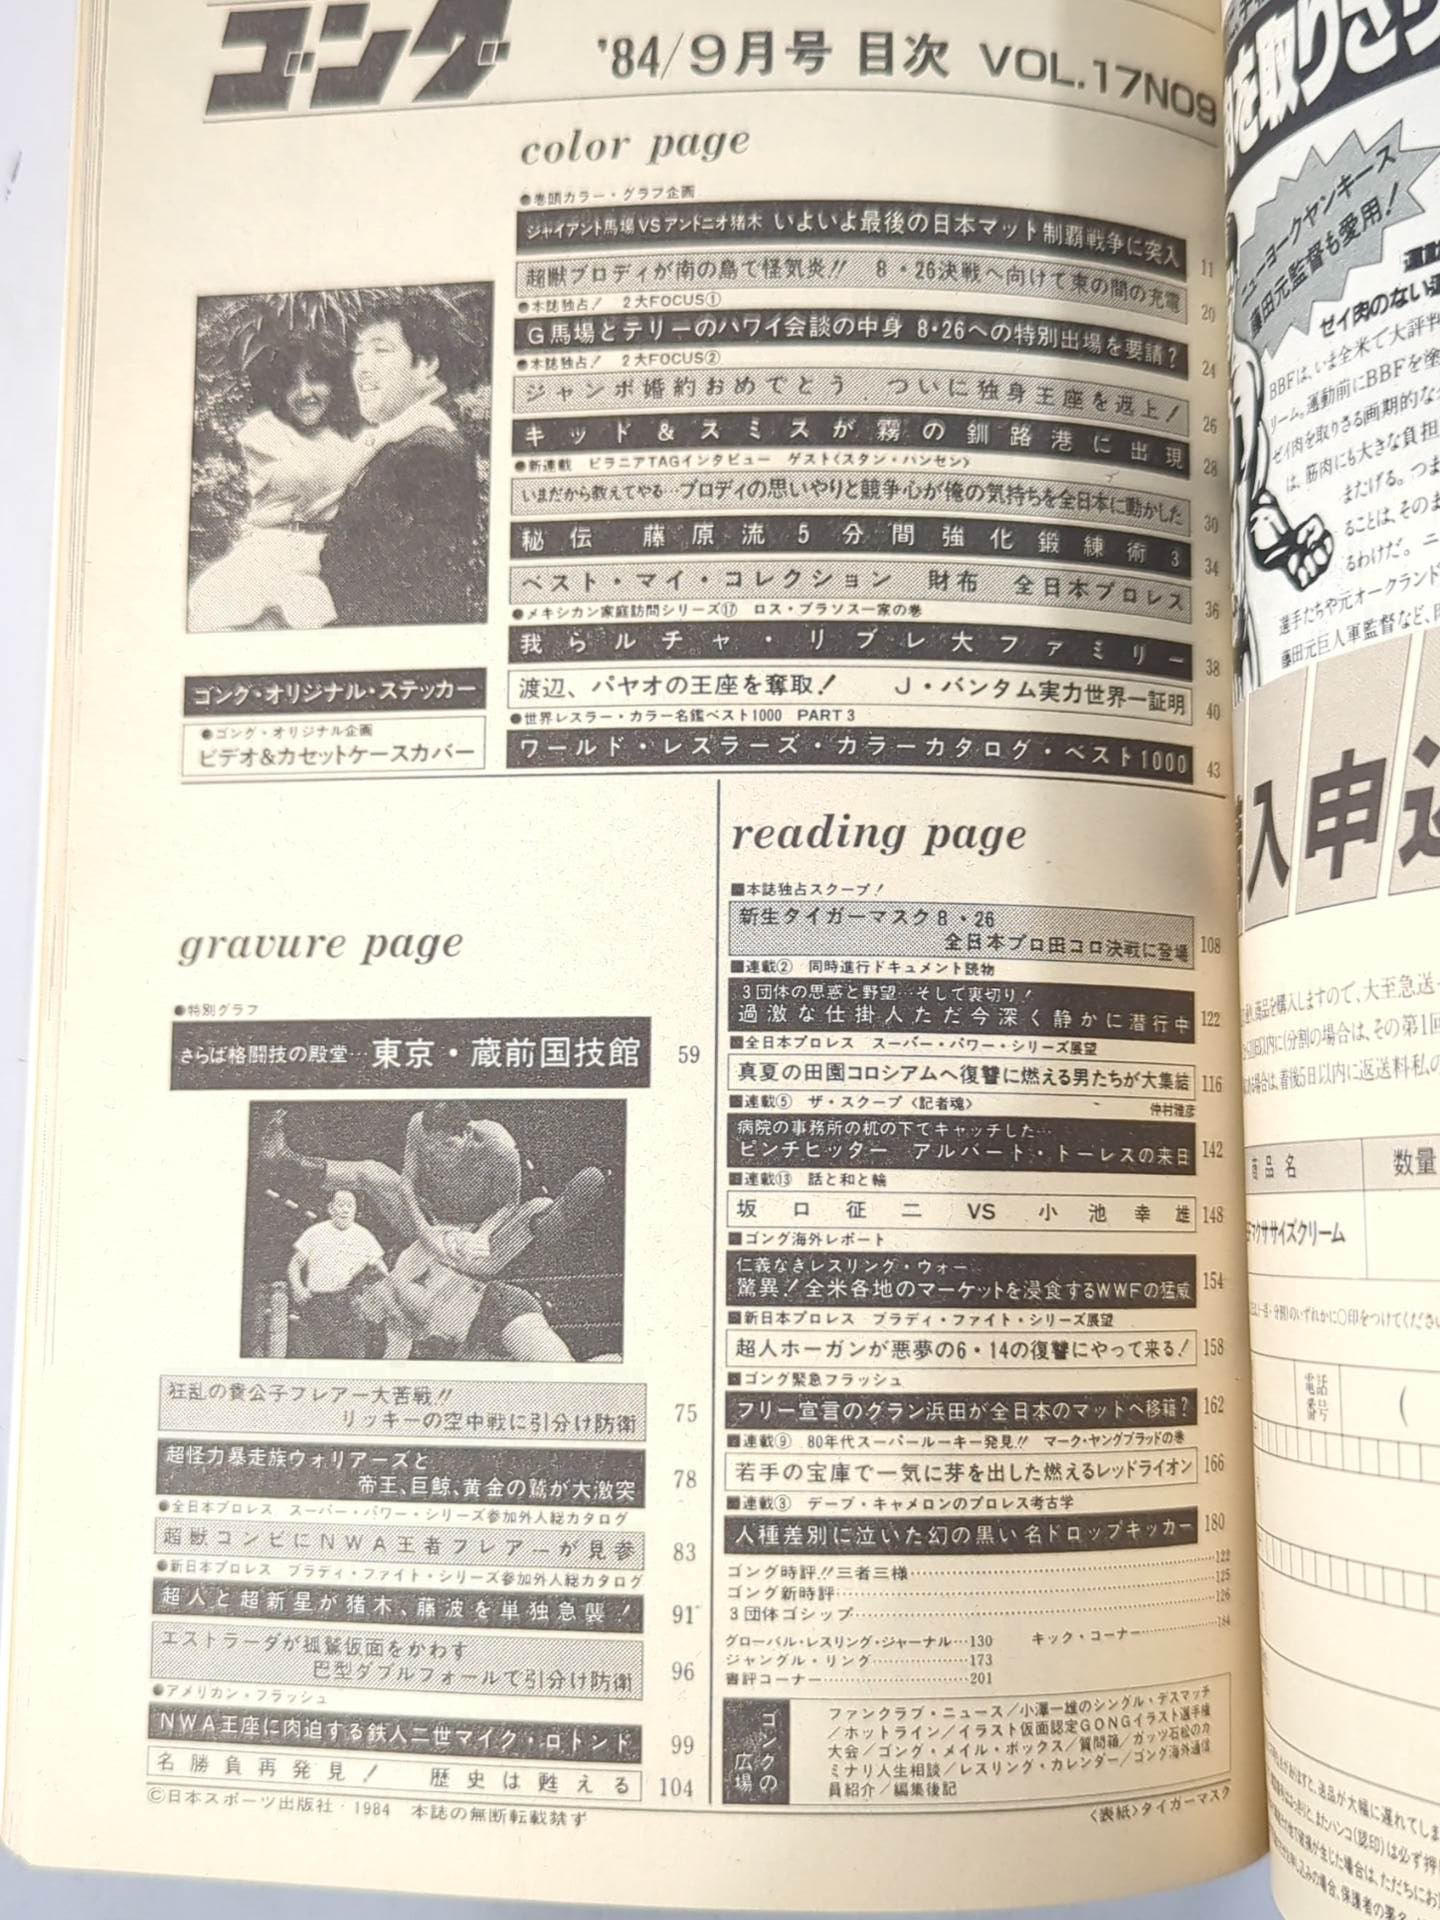 ゴング
'84/9月号 目次 VOL.17NO9
color page
●巻頭カラー・グラフ企画
ジャイアント馬場VSアントニオ猪木 いよいよ最後の日本マット制覇戦争に突入 11
超獣ブロディが南の島で怪気炎!! 8・26決戦へ向けて束の間の充電 20
●本誌独占! 2大FOCUS①
G馬場とテリーのハワイ会談の中身 8・26への特別出場を要請? 24
●本誌独占! 2大FOCUS②
ジャンボ婚約おめでとう ついに独身王座を返上! 26
キッド&スミスが霧の釧路港に出現 28
●新連載 ピラニアTAGインタビュー ゲスト〈スタン・ハンセン〉
いまだから教えてやる…ブロディの思いやりと競争心が俺の気持ちを全日本に動かした 30
秘伝 藤原流5分間強化鍛練術3 34
ベスト・マイ・コレクション 財布 全日本プロレス 36
●メキシカン家庭訪問シリーズ⑰ ロス・ブラソス一家の巻
我らルチャ・リブレ大ファミリー 38
渡辺、パヤオの王座を奪取! J・バンタム実力世界一証明 40
●世界レスラー・カラー名鑑ベスト1000 PART3
ワールド・レスラーズ・カラーカタログ・ベスト1000 43
ゴング・オリジナル・ステッカー
●ゴング・オリジナル企画
ビデオ&カセットケースカバー
gravure page
●特別グラフ
さらば格闘技の殿堂…東京・蔵前国技館 59
狂乱の貴公子フレアー大苦戦!!
リッキーの空中戦に引分け防衛 75
超怪力暴走族ウォリアーズと
帝王、巨鯨、黄金の鷲が大激突 78
●全日本プロレス スーパー・パワー・シリーズ参加外人総カタログ
超獣コンビにNWA王者フレアーが見参 83
●新日本プロレス ブラディ・ファイト・シリーズ参加外人総カタログ
超人と超新星が猪木、藤波を単独急襲! 91
エストラーダが狐鷲仮面をかわす
巴型ダブルフォールで引分け防衛 96
●アメリカン・フラッシュ
NWA王座に肉迫する鉄人二世マイク・ロトンド 99
名勝負再発見! 歴史は甦える 104
©日本スポーツ出版社・1984 本誌の無断転載禁ず
reading page
■本誌独占スクープ!
新生タイガーマスク8・26
全日本プロ田コロ決戦に登場 108
■連載② 同時進行ドキュメント読物
3団体の思惑と野望…そして裏切り!
過激な仕掛人ただ今深く静かに潜行中 122
■全日本プロレス スーパー・パワー・シリーズ展望
真夏の田園コロシアムへ復讐に燃える男たちが大集結 116
■連載⑤ ザ・スクープ〈記者魂〉 仲村雅彦
病院の事務所の机の下でキャッチした…
ピンチヒッター アルバート・トーレスの来日 142
■連載⑬ 話と和と輪
坂口征二 VS 小池幸雄 148
■ゴング海外レポート
仁義なきレスリング・ウォー
驚異!全米各地のマーケットを浸食するWWFの猛威 154
■新日本プロレス ブラディ・ファイト・シリーズ展望
超人ホーガンが悪夢の6・14の復讐にやって来る! 158
■ゴング緊急フラッシュ
フリー宣言のグラン浜田が全日本のマットへ移籍? 162
■連載⑨ 80年代スーパールーキー発見!! マーク・ヤングブラッドの巻
若手の宝庫で一気に芽を出した燃えるレッドライオン 166
■連載③ デーブ・キャメロンのプロレス考古学
人種差別に泣いた幻の黒い名ドロップキッカー 180
ゴング時評!!三者三様…122
ゴング新時評…125
3団体ゴシップ…126
グローバル・レスリング・ジャーナル…130 キック・コーナー…184
ジャングル・リング…173
書評コーナー…201
ゴングの広場
ファンクラブ・ニュース/小澤一雄のシングル・デスマッチ
/ホットライン/イラスト仮面認定GONGイラスト選手権
大会/ゴング・メイル・ボックス/質問箱/ガッツ石松のカ
ミナリ人生相談/レスリング・カレンダー/ゴング海外通信
員紹介/編集後記
〈表紙〉タイガーマスク
を取りさ
ニューヨークヤンキース
藤田元監督も愛用!
ゼイ肉のない
BBFは、いま全米で大評判
リーム。運動前にBBFを塗
ゼイ肉を取りさる画期的な
は、筋肉にも大きな負担
またげる。つま
ることは、そのま
るわけだ。ニ
選手たちや元オークランド
藤田元巨人軍監督など、
入申込
商品を購入しますので、大至急送
商品名 数量
マクササイズクリーム
のいずれかに○印をつけてくださ
電話番号 (